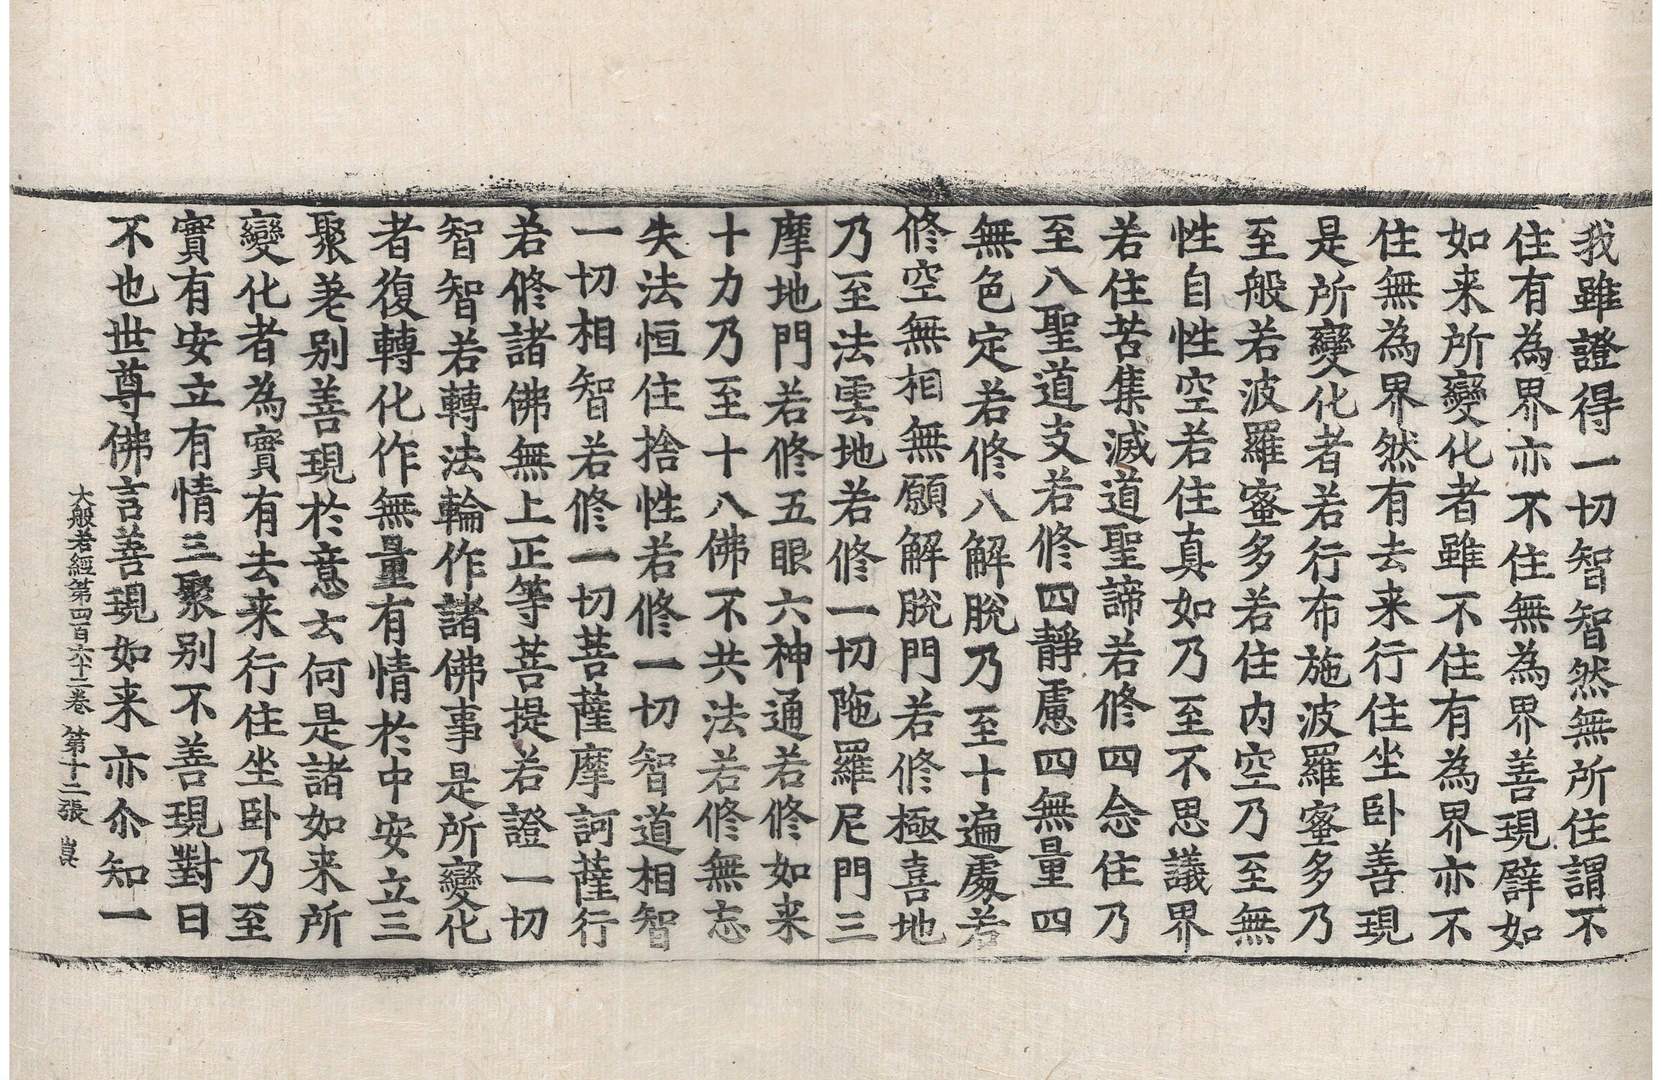 我雖證得一切智智然無所住謂不
住有為界亦不住無為界善現譬如
如来所變化者雖不住有為界亦不
住無為界然有去来行住坐卧善現
是所變化者若行布施波羅蜜多乃
至般若波羅蜜多若住内空乃至無
性自性空若住真如乃至不思議界
若住苦集滅道聖諦若修四念住乃
至八聖道支若修四靜慮四無量四
無色定若修八解脫乃至十遍處若
修空無相無願解脫門若修極喜地
乃至法雲地若修一切陁羅尼門三
摩地門若修五眼六神通若修如来
十力乃至十八佛不共法若修無忘
失法恒住捨性若修一切智道相智
一切相智若修一切菩薩摩訶薩行
若修諸佛無上正等菩提若證一切
智智若轉法輪作諸佛事是所變化
者復轉化作無量有情於中安立三
聚差别善現於意云何是諸如来所
變化者為實有去来行住坐卧乃至
實有安立有情三聚别不善現對曰
不也世尊佛言善現如来亦尒知一
大般若經第四百六十二卷 第十二張 崑